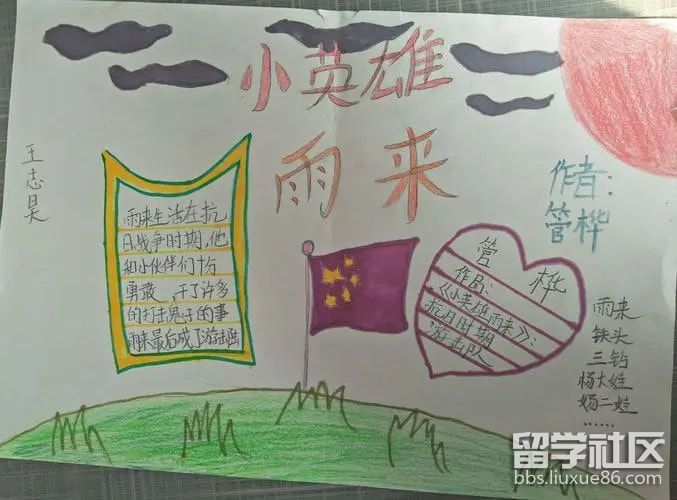 小英雄
雨来
王志昊
作者:
管桦
雨来生活在抗
日战争时期,他
和小伙伴们十份
勇敢,干了许多
的打击鬼子的事
雨来最后成了游击队
管桦
作品:
《小英雄雨来》:
抗日时期
游击队
雨来
铁头
三钻
杨大娃
杨二娃
......
留学社区
bbs.liuxue86.com